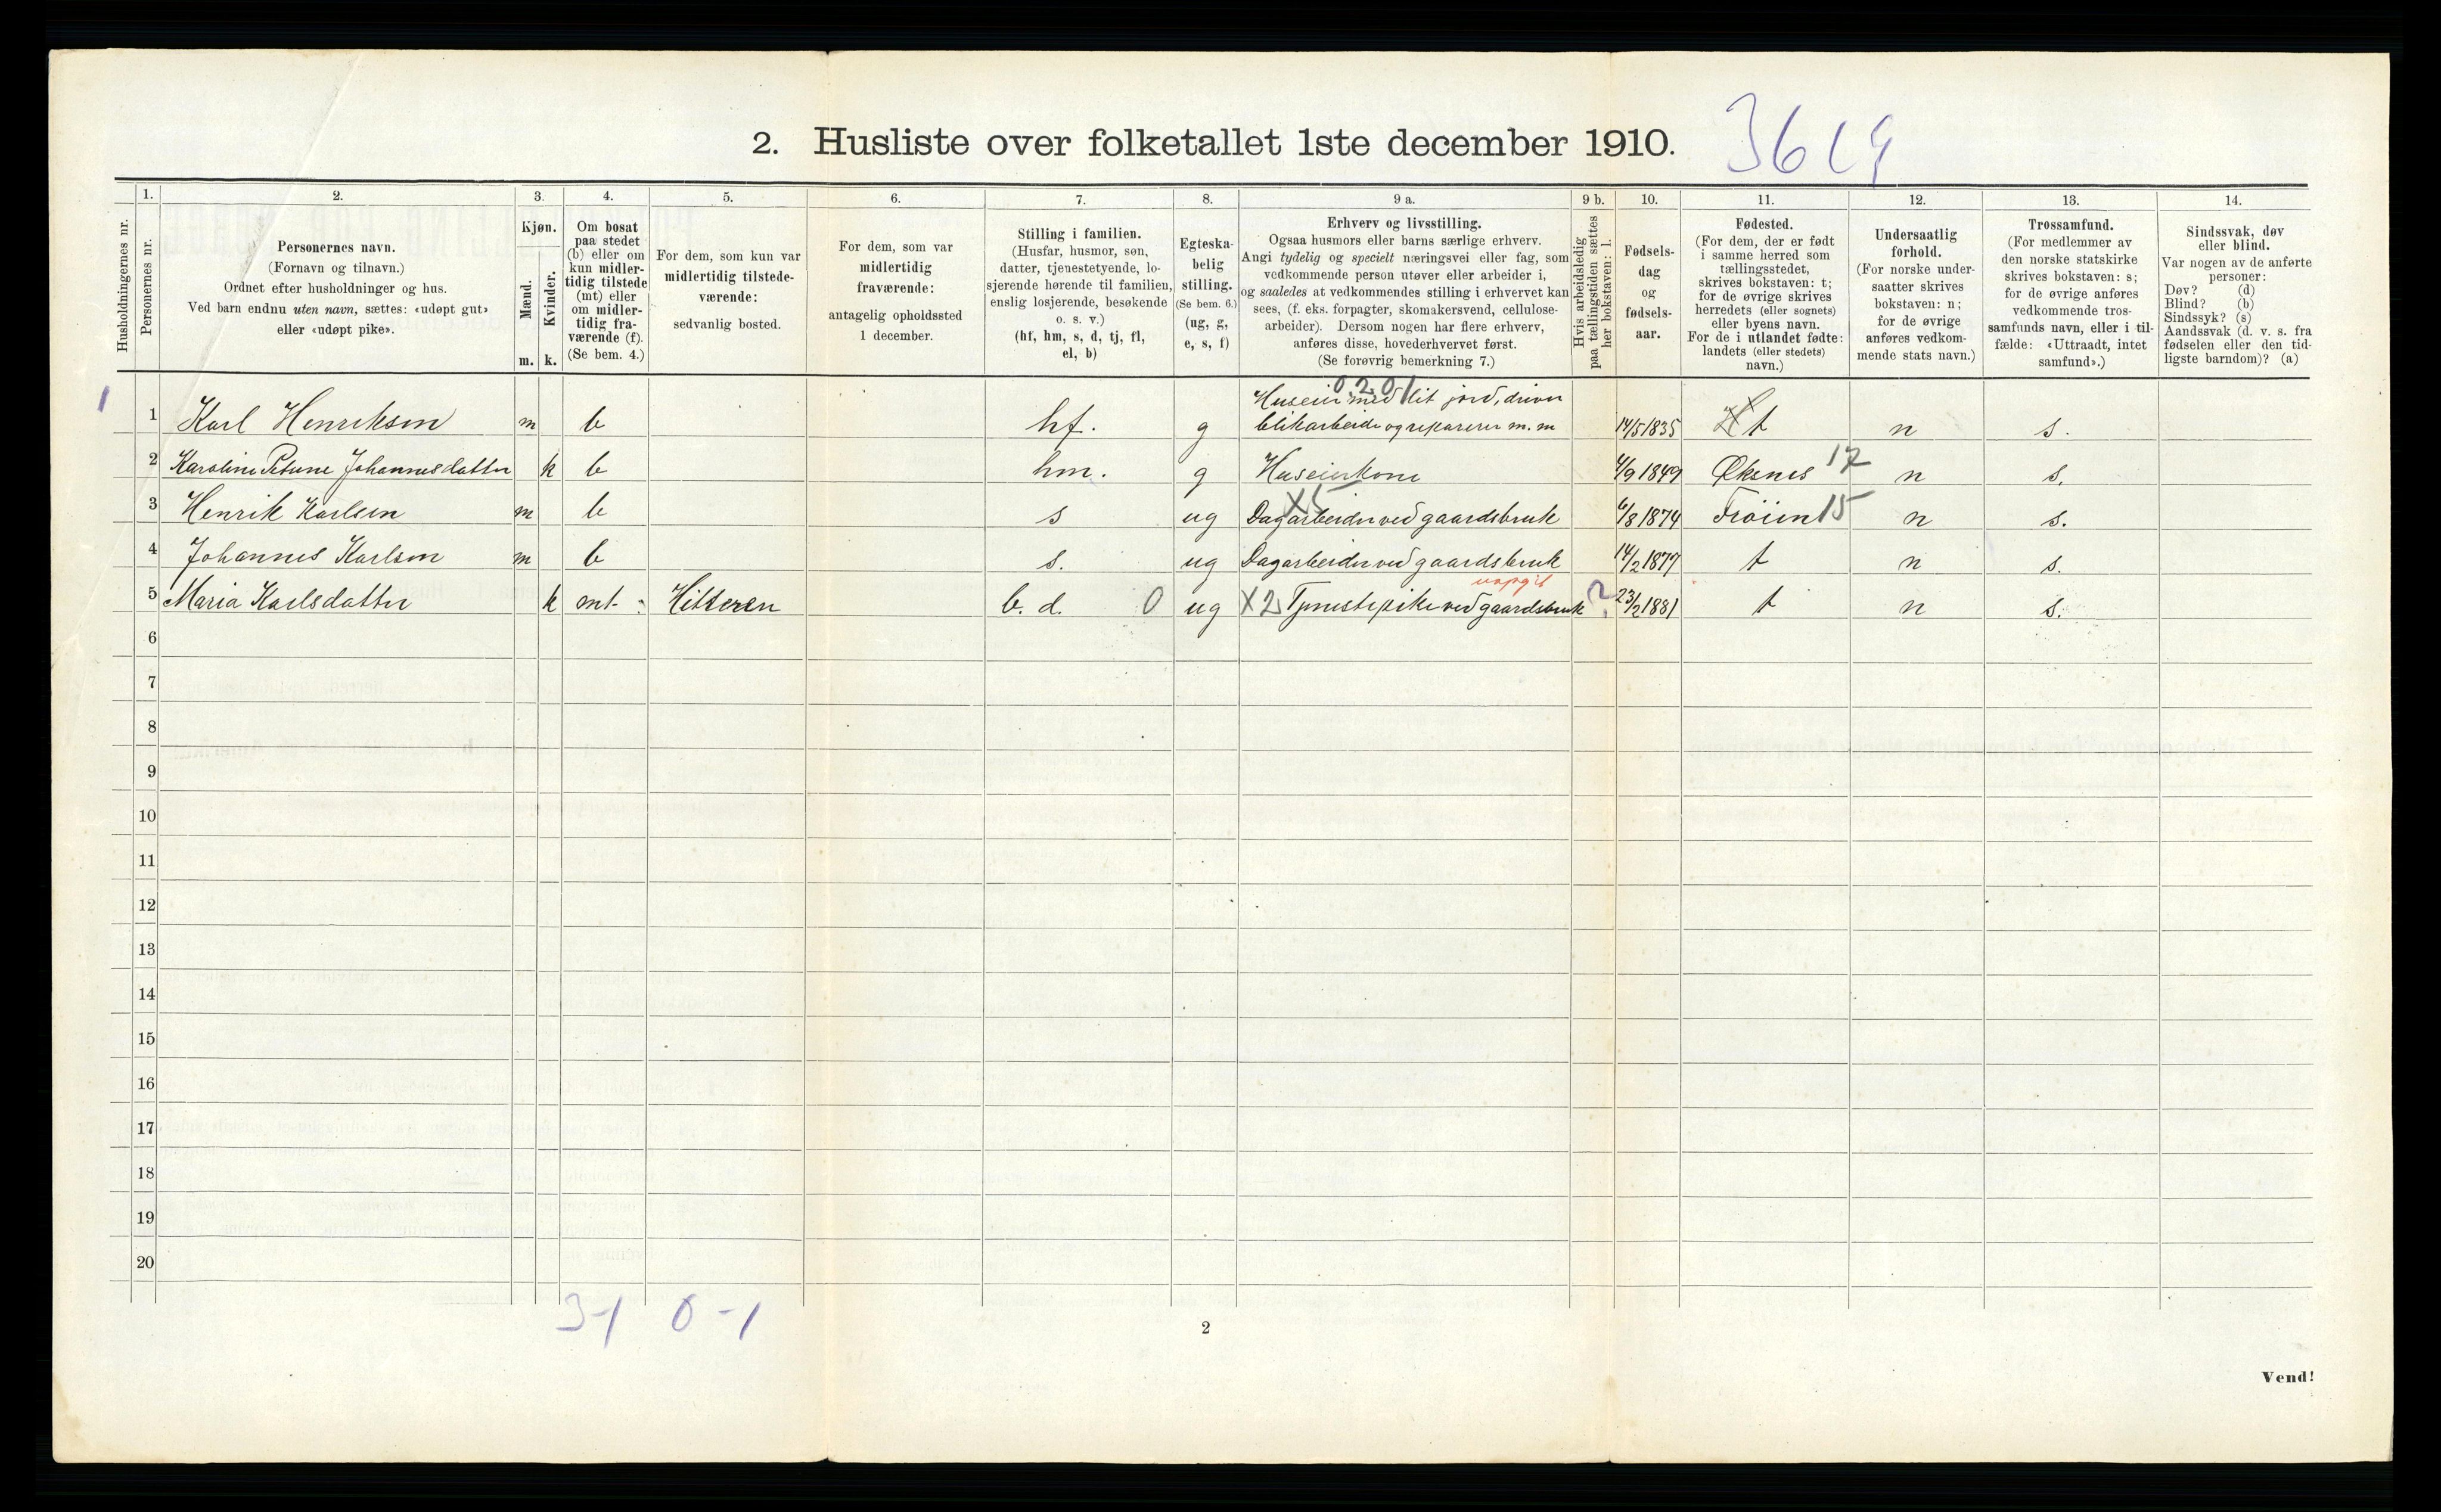 2. Husliste over folketallet 1ste december 1910.
3619
Husholdningernes nr.
1.
Personernes nr.
2.
Personernes navn.
(Fornavn og tilnavn.)
Ordnet efter husholdninger og hus.
Ved barn endnu uten navn, sættes: «udøpt gut»
eller «udøpt pike».
3.
Kjøn.
Mænd.
m.
Kvinder.
k.
4.
Om bosat
paa stedet
(b) eller om
kun midler-
tidig tilstede
(mt) eller
om midler-
tidig fra-
værende (f).
(Se bem. 4.)
5.
For dem, som kun var
midlertidig tilstede-
værende:
sedvanlig bosted.
6.
For dem, som var
midlertidig
fraværende:
antagelig opholdssted
1 december.
7.
Stilling i familien.
(Husfar, husmor, søn,
datter, tjenestetyende, lo-
sjerende hørende til familien,
enslig losjerende, besøkende
o. s. v.)
(hf, hm, s, d, tj, fl,
el, b)
8.
Egteska-
belig
stilling.
(Se bem. 6.)
(ug, g,
e, s, f)
9 a.
Erhverv og livsstilling.
Ogsaa husmors eller barns særlige erhverv.
Angi tydelig og specielt næringsvei eller fag, som
vedkommende person utøver eller arbeider i,
og saaledes at vedkommendes stilling i erhvervet kan
sees, (f. eks. forpagter, skomakersvend, cellulose-
arbeider). Dersom nogen har flere erhverv,
anføres disse, hovederhvervet først.
(Se forøvrig bemerkning 7.)
9 b.
Hvis arbeidsledig
paa tællingstiden sættes
her bokstaven: l.
10.
Fødsels-
dag
og
fødsels-
aar.
11.
Fødested.
(For dem, der er født
i samme herred som
tællingsstedet,
skrives bokstaven: t;
for de øvrige skrives
herredets (eller sognets)
eller byens navn.
For de i utlandet fødte:
landets (eller stedets)
navn.)
12.
Undersaatlig
forhold.
(For norske under-
saatter skrives
bokstaven: n;
for de øvrige
anføres vedkom-
mende stats navn.)
13.
Trossamfund.
(For medlemmer av
den norske statskirke
skrives bokstaven: s;
for de øvrige anføres
vedkommende tros-
samfunds navn, eller i til-
fælde: «Uttraadt, intet
samfund».)
14.
Sindssvak, døv
eller blind.
Var nogen av de anførte
personer:
Døv? (d)
Blind? (b)
Sindssyk? (s)
Aandssvak (d. v. s. fra
fødselen eller den tid-
ligste barndom)? (a)
0.2.01
1 1 Karl Henriksen m b hf. g Huseier med lit jord, driver
blikarbeide og reparerer m. m 14/5 1835 t n s.
2 Karoline Petrine Johannesdatter k b hm. g Huseierkone 4/9 1849 Øksnes 17 n s.
3 Henrik Karlsen m b s ug X5 Dagarbeider ved gaardsbruk 6/8 1874 Frøien 15 n s.
4 Johannes Karlsen m b s. ug Dagarbeider ved gaardsbruk 14/2 1879 t n s.
uopgit
5 Maria Karlsdatter k mt. Hitteren b. d. 0 ug X2 Tjenestepike ved gaardsbruk ? 23/2 1881 t n s.
6
7
8
9
10
11
12
13
14
15
16
17
18
19
20
3-1 0-1
2
Vend!